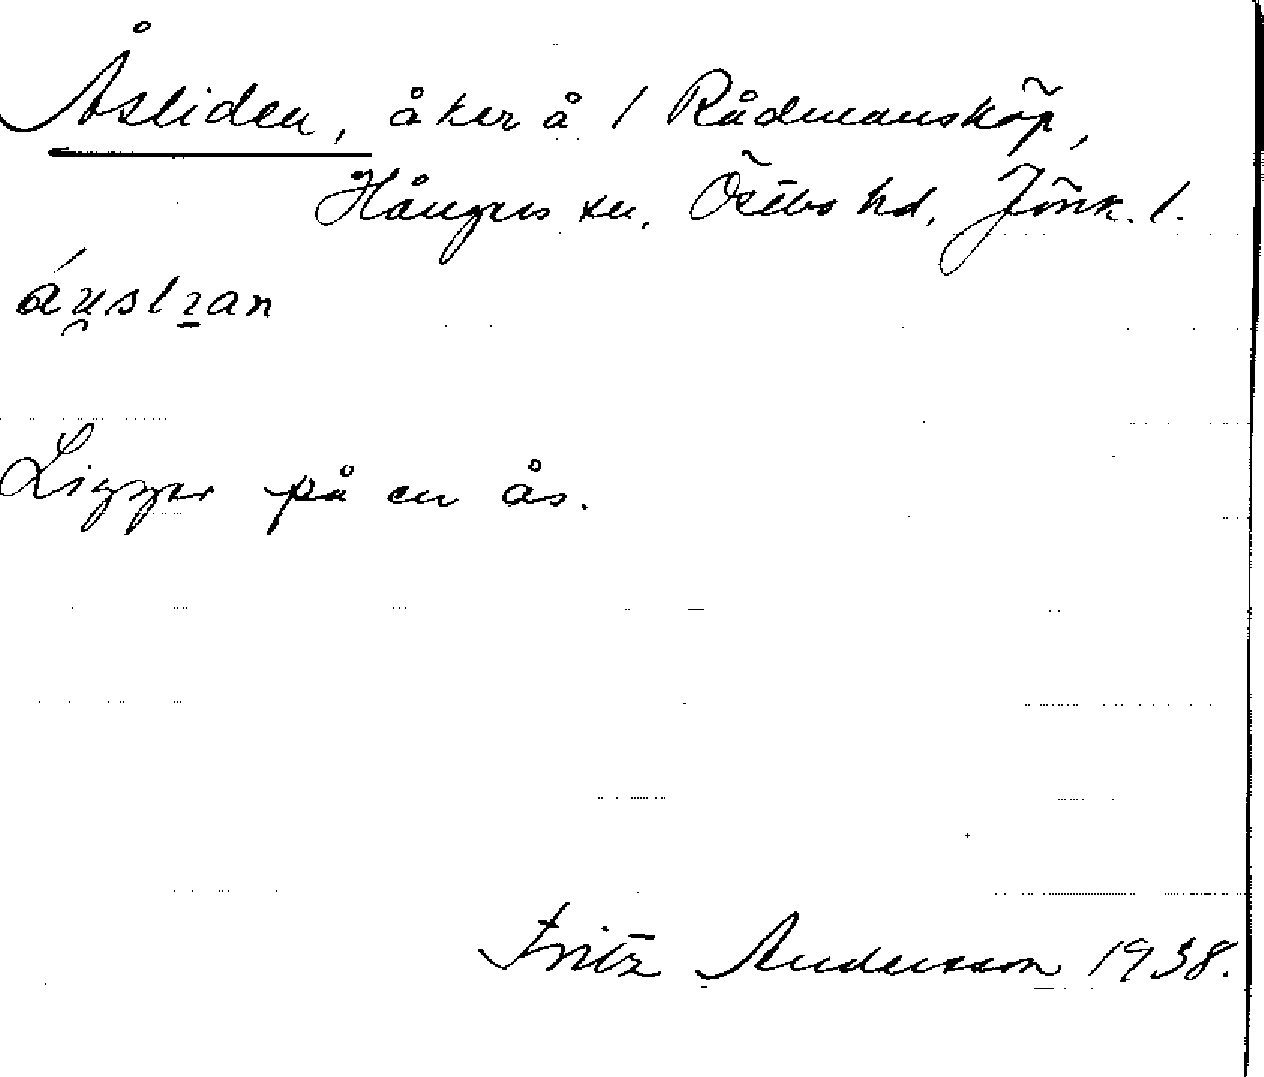 Åsliden, åker å 1 Rådmansköp,
Hångers sn. Östbo hd, Jönk. l.
Ligger på en ås.
Fritz Andersson 1938.